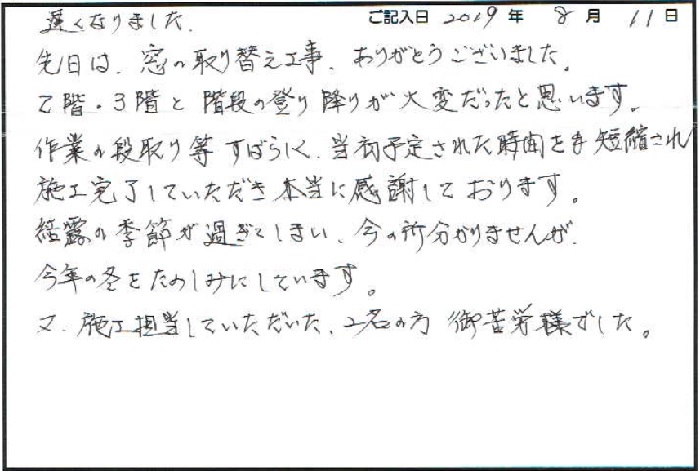 遅くなりました. ご記入日 2019 年 8 月 11 日
先日は、窓の取り替え工事、ありがとうございました。
2階・3階と階段の登り降りが大変だったと思います。
作業の段取り等すばらしく、当初予定された時間をも短縮され
施工完了していただき本当に感謝しております。
結露の季節が過ぎてしまい、今の所分かりませんが、
今年の冬をたのしみにしています。
又、施工担当していただいた、2名の方 御苦労様でした。